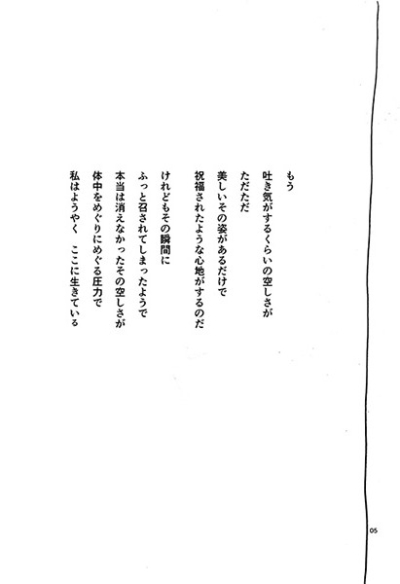 もう
吐き気がするくらいの空しさが
ただただ
美しいその姿があるだけで
祝福されたような心地がするのだ
けれどもその瞬間に
ふっと召されてしまったようで
本当は消えなかったその空しさが
体中をめぐりにめぐる圧力で
私はようやく　ここに生きている
05